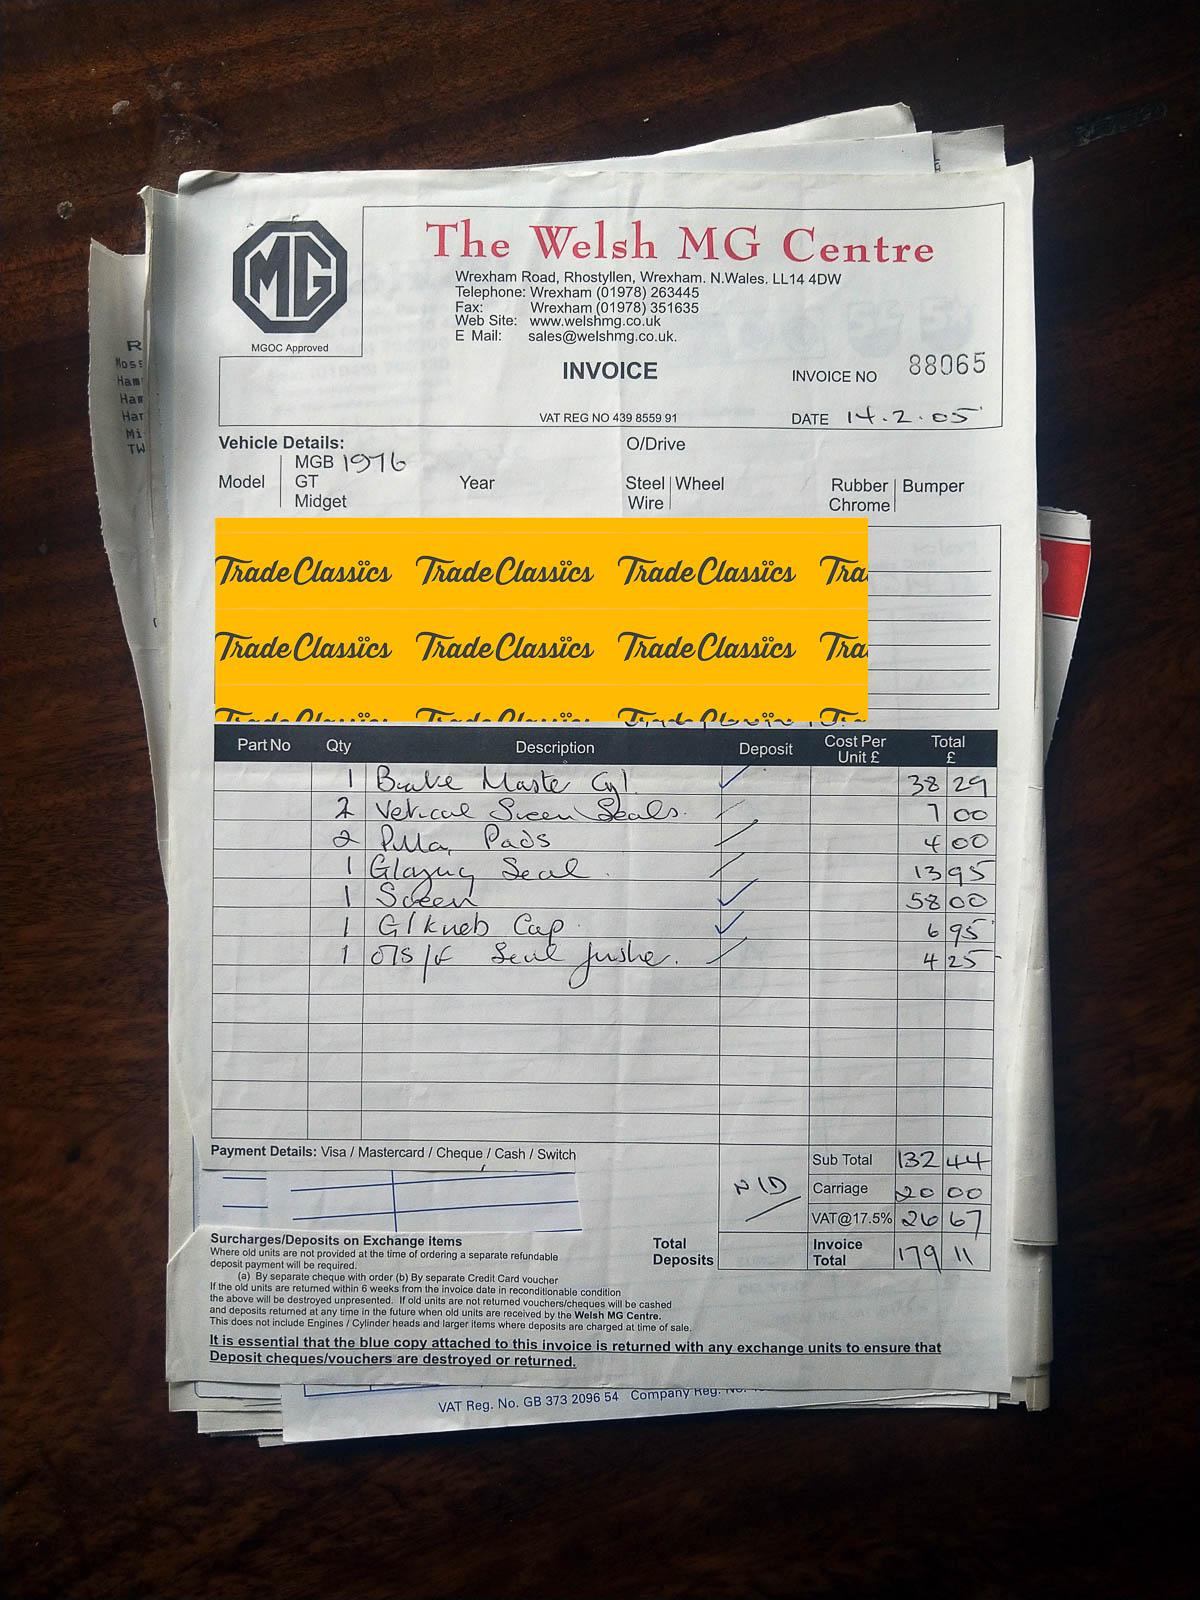 The Welsh MG Centre
MG
MGOC Approved
Wrexham Road, Rhostyllen, Wrexham. N.Wales. LL14 4DW
Telephone: Wrexham (01978) 263445
Fax: Wrexham (01978) 351635
Web Site: www.welshmg.co.uk
E Mail: sales@welshmg.co.uk.
INVOICE
INVOICE NO 88065
VAT REG NO 439 8559 91
DATE 14.2.05
Vehicle Details:
O/Drive
Model MGB 1976
GT
Midget
Year
Steel Wheel
Wire
Rubber Bumper
Chrome
Trade Classics Trade Classics Trade Classics Tra
Trade Classics Trade Classics Trade Classics Tra
Trade Classics Trade Classics Trade Classics Tra
Part No Qty Description Deposit Cost Per Unit £ Total £
1 Brake Master Cyl. 38 29
2 Vetical Sceen Seals. 7 00
2 Pads 4 00
1 Glazing Seal. 13 95
1 Sceen 58 00
1 G/knob Cap. 6 95
1 Seal 4 25
Payment Details: Visa / Mastercard / Cheque / Cash / Switch
Sub Total 132 44
Carriage 20 00
VAT@17.5% 26 67
Total Deposits
Invoice Total 179 11
Surcharges/Deposits on Exchange items
Where old units are not provided at the time of ordering a separate refundable
deposit payment will be required.
(a) By separate cheque with order (b) By separate Credit Card voucher
If the old units are returned within 6 weeks from the invoice date in reconditionable condition
the above will be destroyed unpresented. If old units are not returned vouchers/cheques will be cashed
and deposits returned at any time in the future when old units are received by the Welsh MG Centre.
This does not include Engines / Cylinder heads and larger items where deposits are charged at time of sale.
It is essential that the blue copy attached to this invoice is returned with any exchange units to ensure that
Deposit cheques/vouchers are destroyed or returned.
VAT Reg. No. GB 373 2096 54 Company Reg. No.